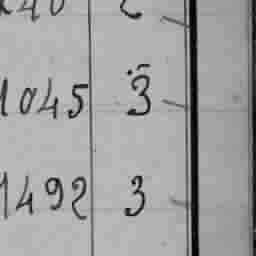 1045 3
1492 3